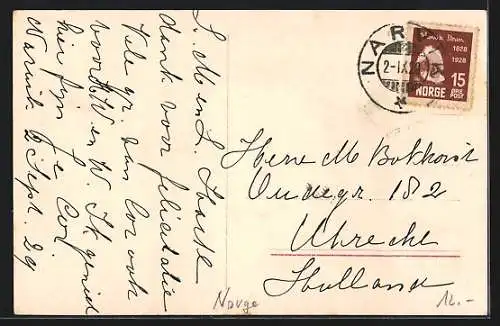 L. M en L. Hartel.
dank voor felicitatie
Vele gr. van Cor ook
voor H W en W. Ik geniet
hier fijn
Je Cor
Narvik 2 Sept. 29
NARV
2-IX.29
Henrik Ibsen
1828
1928
15
ØRE
POST
NORGE
Herre M Bokhorst
Oudegr. 182
Utrecht
Holland
Norge
12.-